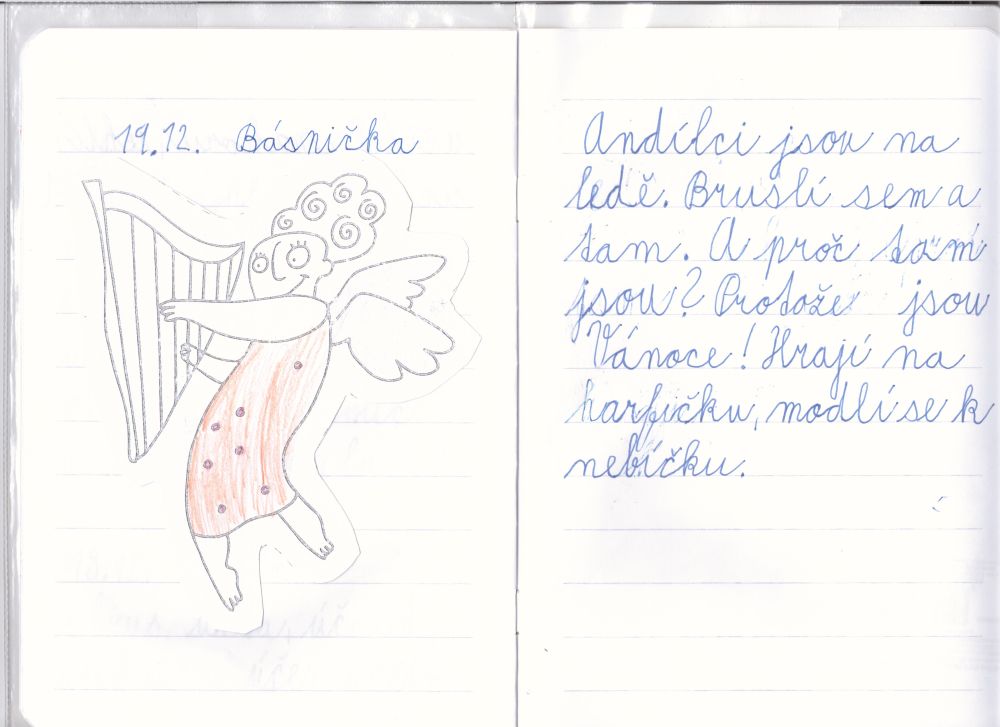 19.12. Básnička
Andílci jsou na
ledě. Bruslí sem a
tam. A proč tam
jsou? Protože jsou
Vánoce! Hrají na
harfičku, modlí se k
nebíčku.